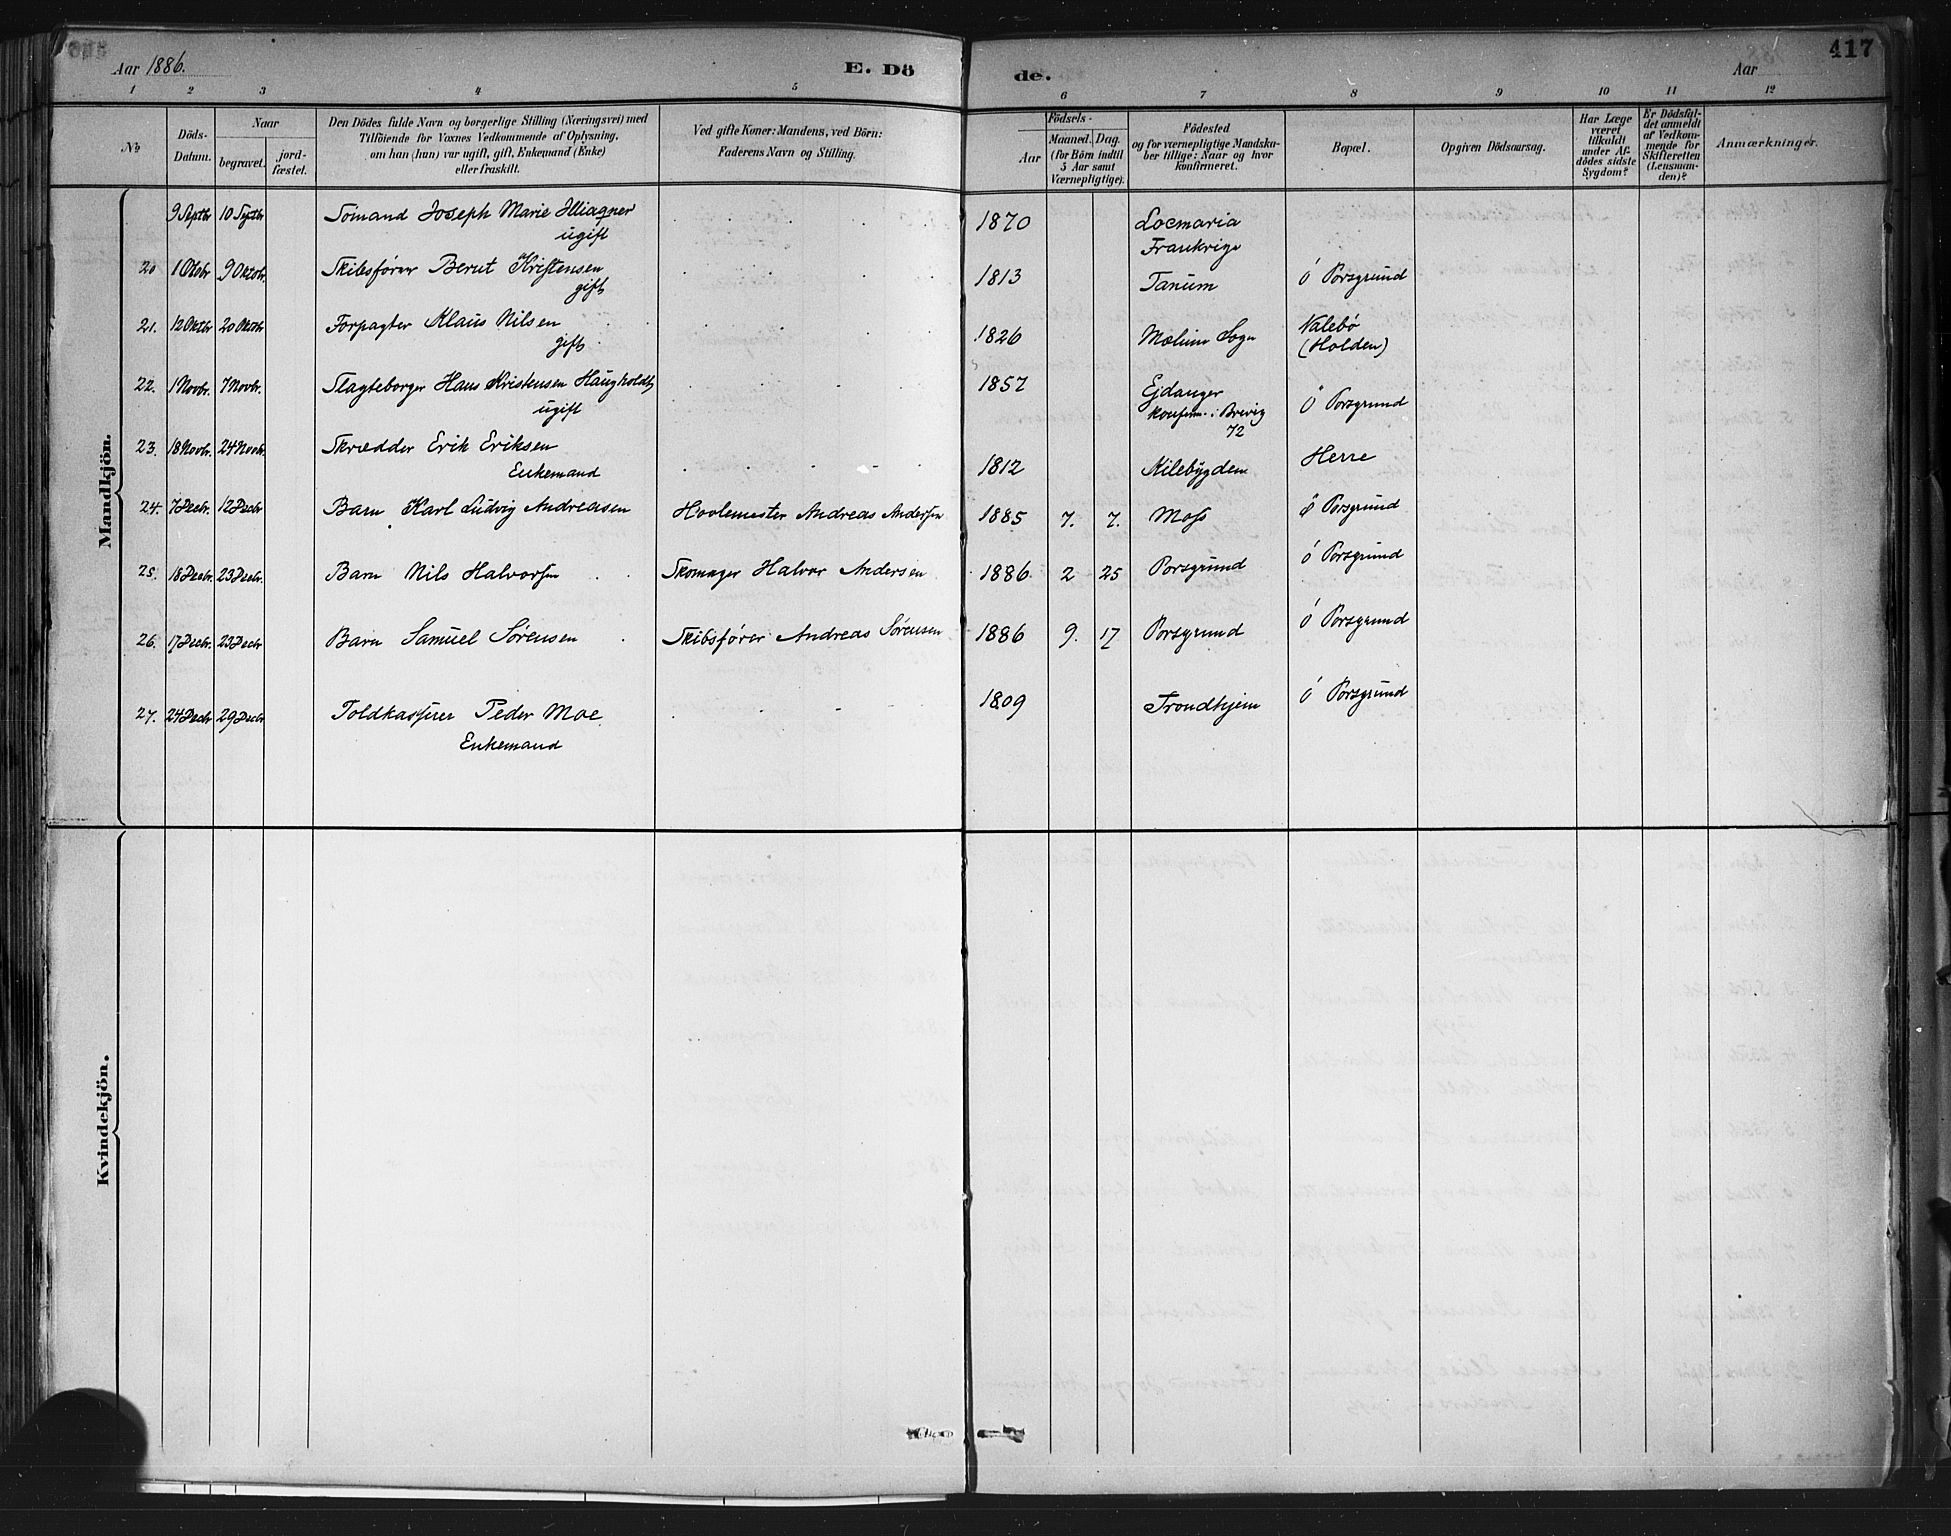 Aar 1886.
E. Dö
de.
Aar
417
1 2 3 4 5 6 7 8 9 10 11 12
No
Döds-
Datum.
Naar
begravet.
jord-
fæstet.
Den Dödes fulde Navn og borgerlige Stilling (Næringsvei) med
Tilföiende for Voxnes Vedkommende af Oplysning,
om han (hun) var ugift, gift, Enkemand (Enke)
eller fraskilt.
Ved gifte Koner: Mandens, ved Börn:
Faderens Navn og Stilling.
Födsels-
Aar
Maaned. Dag.
(for Börn indtil
5 Aar samt
Værnepligtige).
Födested
og for værnepligtige Mandska-
ber tillige: Naar og hvor
konfirmeret.
Bopæl.
Opgiven Dödsaarsag.
Har Læge
været
tilkaldt
under Af-
dödes sidste
Sygdom?
Er Dödsfal-
det anmeldt
af Vedkom-
mende for
Skifteretten
(Lensman-
den)?
Anmærkninger.
Mandkjön.
9 Septbr 10 Septbr Sømand Joseph Marie 1870 Locmaria
ugift Frankrige
20 1 Oktbr 9 Oktobr. Skibsfører Bernt Kristensen 1813 Tanum ö Porsgrund
gift
21. 12 Oktbr 20 Oktobr Forpagter Klaus Nilsen 1826 Mælum Sogn Valebø
gift (Holden)
22. 1 Novbr. 7 Novbr. Slagteborger Hans Kristensen Haugholdt 1857 Ejdanger ö Porsgrund
ugift Konfirm. i Brevig
72
23. 18 Novbr. 24 Novbr. Skrædder Erik Eriksen 1812 Kilebygden Herre
Enkemand
24. 7 Decbr. 12 Decbr Barn Karl Ludvig Andreasen Hovlemester Andreas Andersen 1885 7. 7. Moss ö Porsgrund
25. 18 Decbr. 23 Decbr. Barn Nils Halvorsen Skomager Halvor Andersen 1886 2 25 Porsgrund ö Porsgrund
26. 17 Decbr. 23 Decbr Barn Samuel Sørensen Skibsfører Andreas Sørensen 1886 9. 17 Porsgrund ö Porsgrund
27. 24 Decbr 29 Decbr Toldkasserer Peder Moe 1809 Trondhjem ö Porsgrund
Enkemand
Kvindekjön.